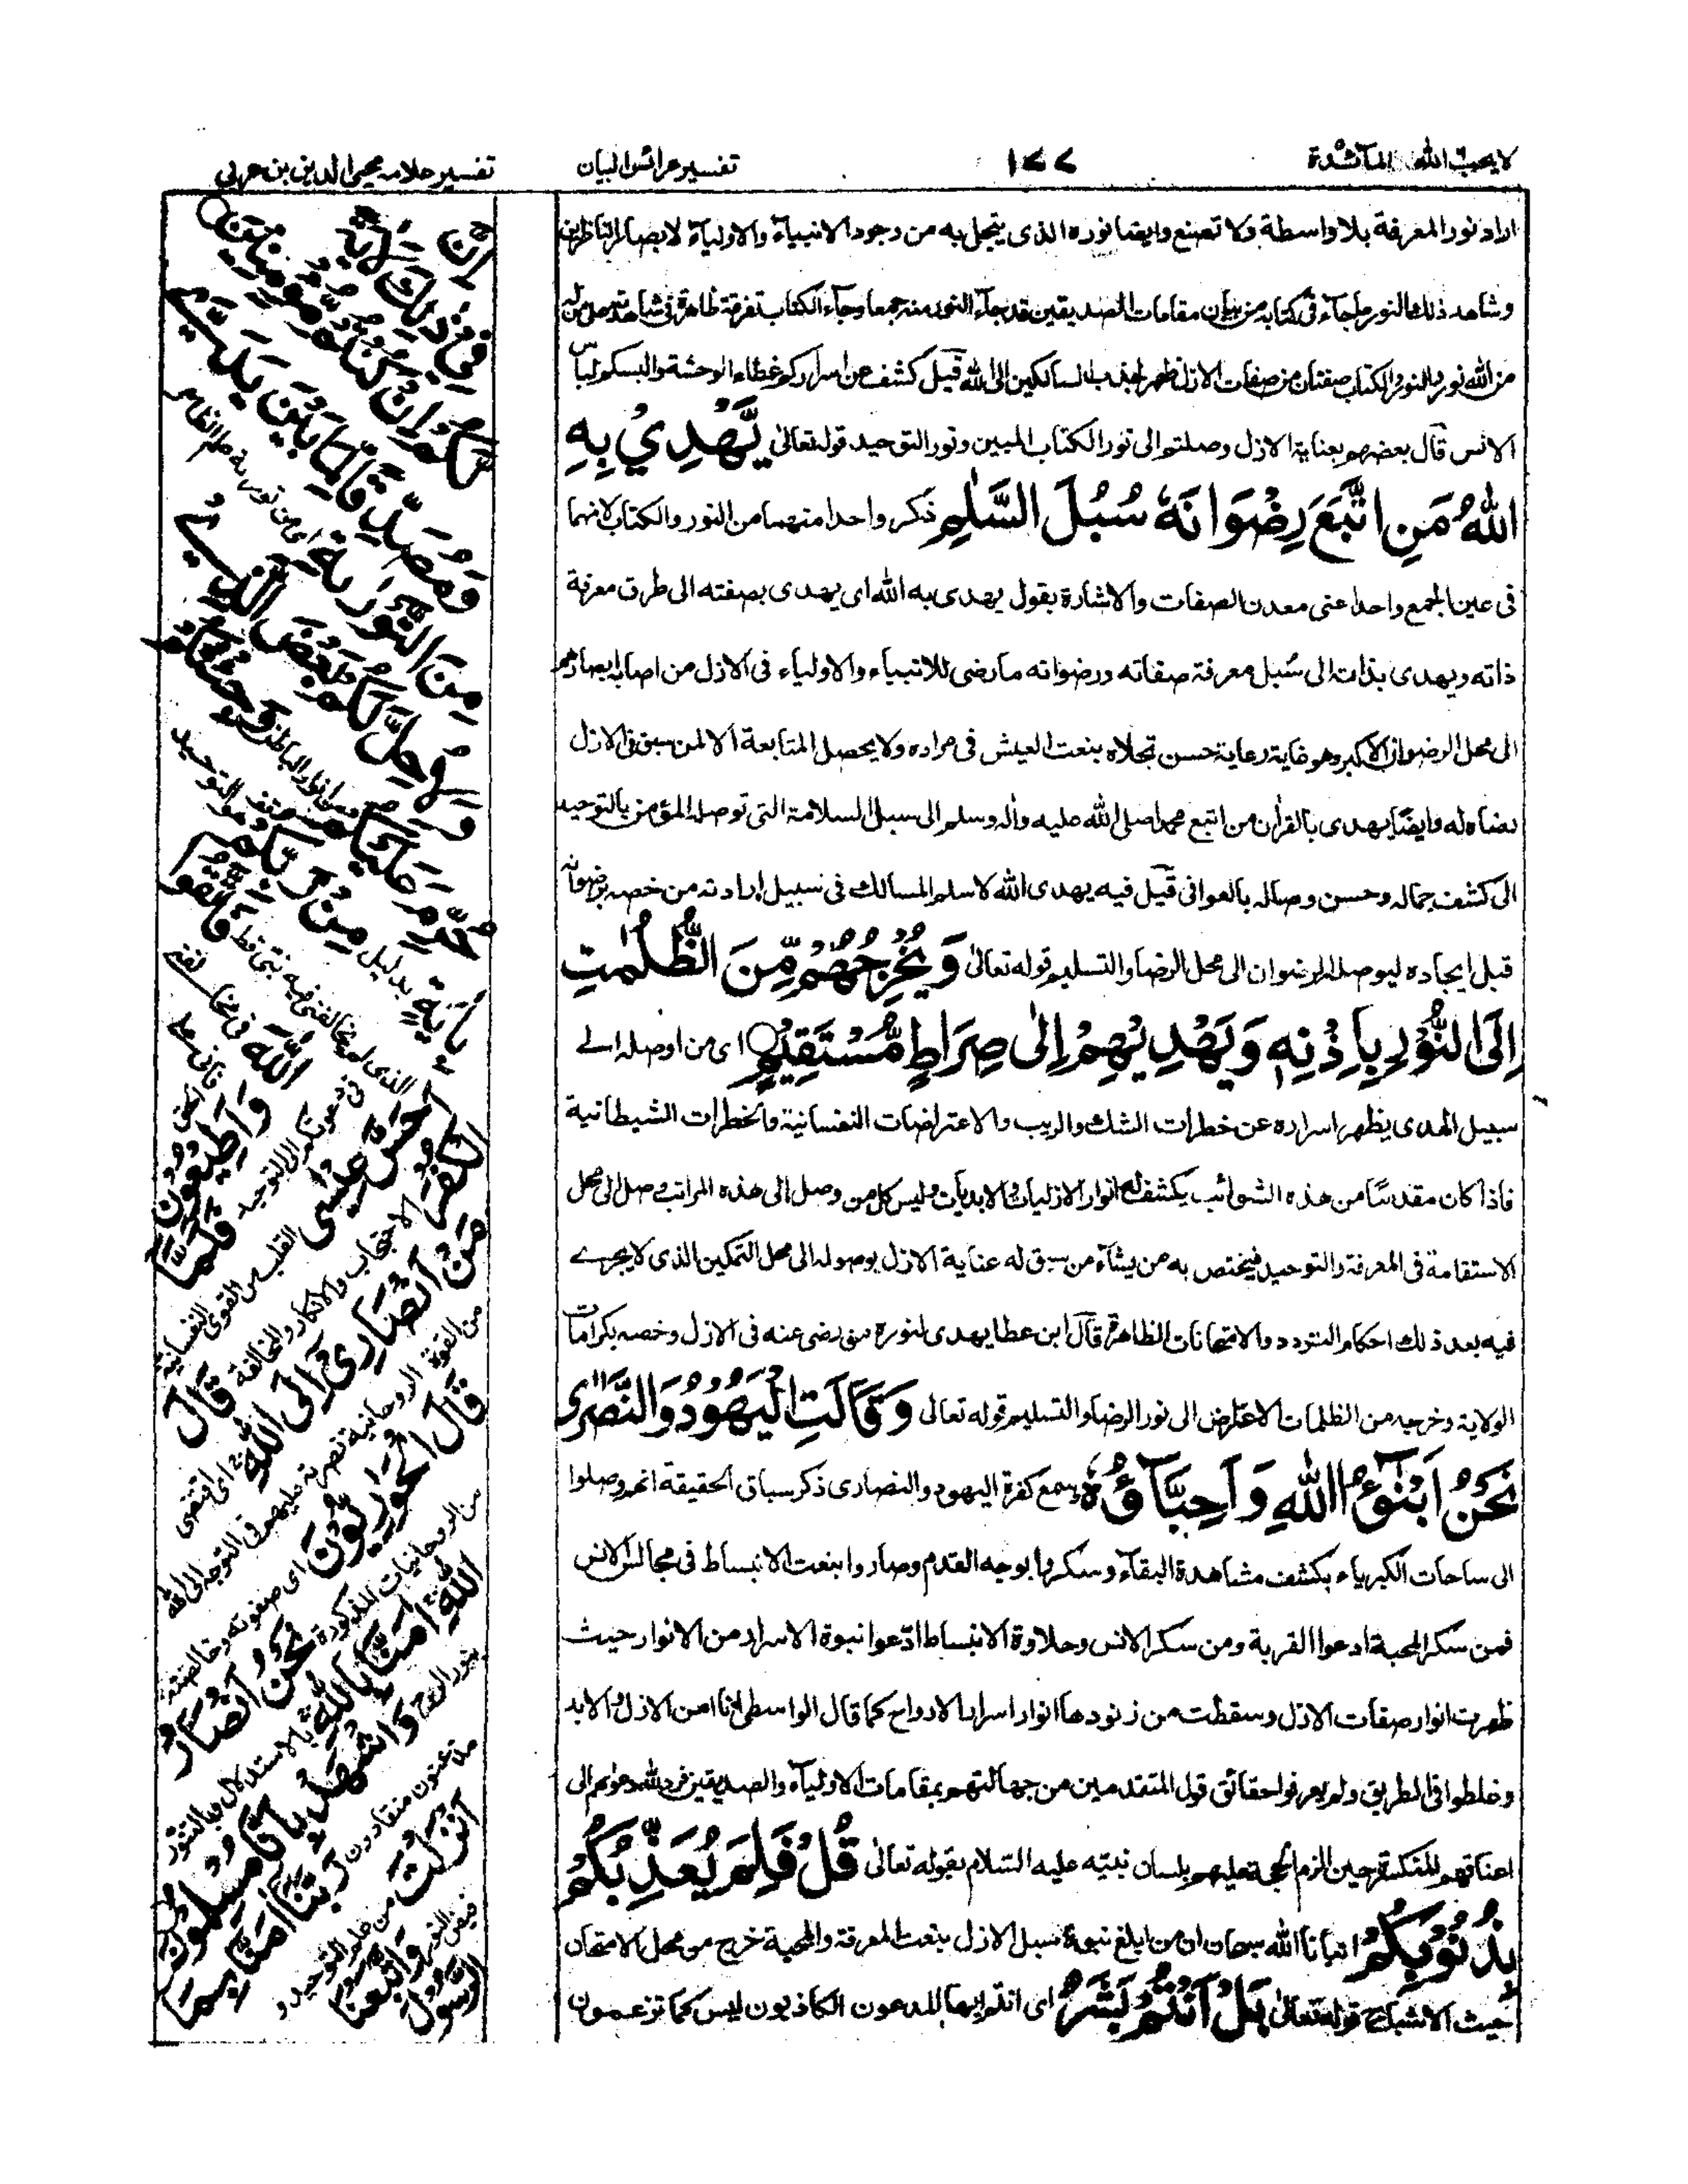 لا يحب الله المآئدة
١٧٧
تفسير عرائس البيان
تفسير علامه محيى الدين بن عربى
اراد نور المعرفة بلا واسطة ولا تصنع وايضا نوره الذى يتجلى به من وجود الانبياء والاولياء لابصار الناظرين
وشاهد ذلك النور ما جاء فى كتابه من بيان مقامات الصديقين قد جاء النور منه جمعا وجاء الكتاب تفرقة ظاهرة
من الله نور بالنور والكتاب صفتان من صفات الازل ظهر لجذب السالكين الى الله قيل كشف عن اسراركم غطاء الوحشة والبسكم لباس
الانس قال بعضهم بعناية الازل وصلتم الى نور الكتاب المبين ونور التوحيد قوله تعالى يَّهْدِيْ بِهِ
اللهُ مَنِ اتَّبَعَ رِضْوَانَهٗ سُبُلَ السَّلٰمِ ذكر واحدا منهما من النور والكتاب لانهما
فى عين الجمع واحد اعنى معدن الصفات والاشارة بقول يهدى به الله اى يهدى بصفته الى طرق معرفة
ذاته ويهدى بذاته الى سُبل معرفة صفاته ورضوانه ما رضى للانبياء والاولياء فى الازل من اصابة بصائرهم
الى محل الرضوان الاكبر وهو غاية رعاية حسن تجلاه بنعت العيش فى مراده ولا يحصل المتابعة الا لمن سبق فى الازل
رضاه له وايضًا يهدى بالقرأن من اتبع محمدا صلى الله عليه واٰله وسلم الى سبل السلامة التى توصله المؤمن بالتوحيد
الى كشف جماله وحسن وصاله بالعوافى قيل فيه يهدى الله لاسلم المسالك فى سبيل ارادته من خصه برضوانه
قبل ايجاده ليوصله الرضوان الى محل الرضا والتسليم قوله تعالى وَيُخْرِجُهُمْ مِّنَ الظُّلُمٰتِ
اِلَى النُّوْرِ بِاِذْنِهٖ وَيَهْدِيْهِمْ اِلٰى صِرَاطٍ مُّسْتَقِيْمٍ اى من اوصله الى
سبيل الهدى يظهر اسراره عن خطرات الشك والريب والاعتراضات النفسانية والخطرات الشيطانية
فاذا كان مقدسًا من هذه الشوائب يكشف له انوار الازليات والابديات وليس كل من وصل الى هذه المراتب وصل الى محل
الاستقامة فى المعرفة والتوحيد فيختص به من يشاء من سبق له عناية الازل بوصوله الى محل التمكين الذى لا يجرى
فيه بعد ذلك احكام التردد والامتحانات الظاهرة قال ابن عطا يهدى لنوره من رضى عنه فى الازل وخصه بكرامات
الولاية وخرجه من الظلمات الاعتراض الى نور الرضا والتسليم قوله تعالى وَقَالَتِ الْيَهُوْدُ وَالنَّصٰرٰى
نَحْنُ اَبْنٰٓؤُا اللهِ وَاَحِبَّآؤُهٗ سمع كفرة اليهود والنصارى ذكر سباق الحقيقة انهم وصلوا
الى ساحات الكبرياء بكشف مشاهدة البقآء وسكروا بوجه القدم وصاروا بنعت الانبساط فى مجالس الانس
فمن سكر المحبة ادعوا القربة ومن سكر الانس وحلاوة الانبساط ادّعوا نبوة الاسرار من الانوار حيث
ظهرت انوار صفات الازل وسقطت من زنودها انوار اسرار الارواح كما قال الواسطى انا ابن الازل والابد
وغلطوا فى الطريق ولم يعرفوا حقائق قول المتقدمين من جهالتهم بمقامات الاولياء والصديقين فرد الله دعواهم الى
اعناقهم المنكسرة حين الزم الحجة عليهم بلسان نبيّه عليه السّلام بقوله تعالى قُلْ فَلِمَ يُعَذِّبُكُمْ
بِذُنُوْبِكُمْ انبانا الله سبحانه ان من ابلغ نبوة سبل الازل بنعت المعرفة والمحبة خرج من محل الامتحان
حيث الاشباح قوله تعالى بَلْ اَنْتُمْ بَشَرٌ اى انتم ايها المدعون الكاذبون ليس كما تزعمون
اِنَّ
فِيْ ذٰلِكَ لَاٰيَةً
لَّكُمْ اِنْ كُنْتُمْ مُّؤْمِنِيْنَ
وَمُصَدِّقًا لِّمَا بَيْنَ يَدَيَّ
مِنَ التَّوْرٰىةِ اى من توراة علم الظاهر
وَلِاُحِلَّ لَكُمْ بَعْضَ الَّذِيْ
حُرِّمَ عَلَيْكُمْ من انوار الباطن وَجِئْتُكُمْ
بِاٰيَةٍ بدليل مِّنْ رَّبِّكُمْ وهو التوحيد
الذى لم يخالفنى فيه نبى قط فَاتَّقُوا
اللّٰهَ فى مخالفتى
فى دعوتكم الى التوحيد وَاَطِيْعُوْنِ
فَلَمَّا اَحَسَّ عِيْسٰى القلب من القوى النفسانية
الْكُفْرَ الاحتجاب والانكار والمخالفة قَالَ
مَنْ اَنْصَارِيْ اِلَى اللهِ اى اقتضى
من القوة الروحانية نصرته عليهم فى التوجه الى الله
قَالَ الْحَوَارِيُّوْنَ اى صفوته وخالصته
من الروحانيات المذكورة نَحْنُ اَنْصَارُ
اللهِ اٰمَنَّا بِاللهِ بالاستدلال وبالتنور
بنور الروح وَاشْهَدْ بِاَنَّا مُسْلِمُوْنَ
مذعنون منقادون رَبَّنَا اٰمَنَّا بِمَا
اَنْزَلْتَ من علم التوحيد و
فيض النور وَاتَّبَعْنَا
الرَّسُوْلَ